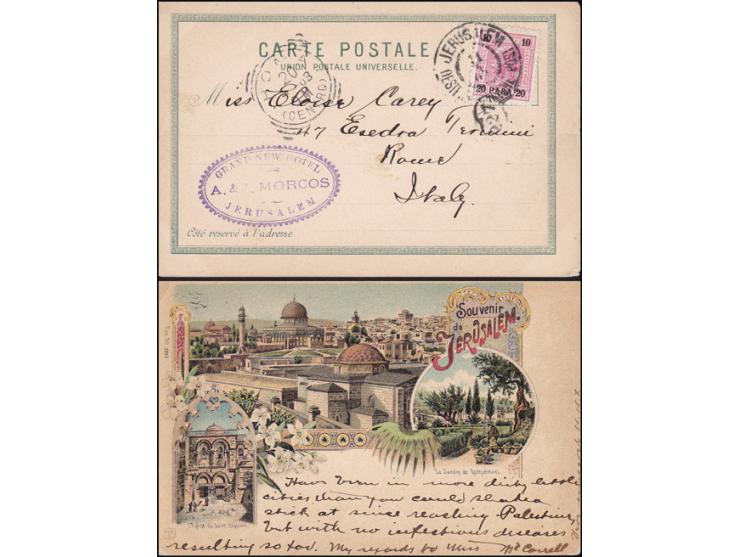 CARTE POSTALE
UNION POSTALE UNIVERSELLE.
10
20 PARA 20
JERUSALEM
ROMA
20
(CENTRO)
Miss Eloise Carey
47 Esedra Termini
Rome
Italy.
GRAND NEW HOTEL
MORCOS
JERUSALEM
Côté reservé à l'adresse.
Souvenir
de
JERUSALEM.
Le Jardin de Gethsémani.
Have been in more dirty little
cities than you could shake a
stick at since reaching Palestine,
but with no infectious diseases
resulting so far. My regards to Miss McConnell